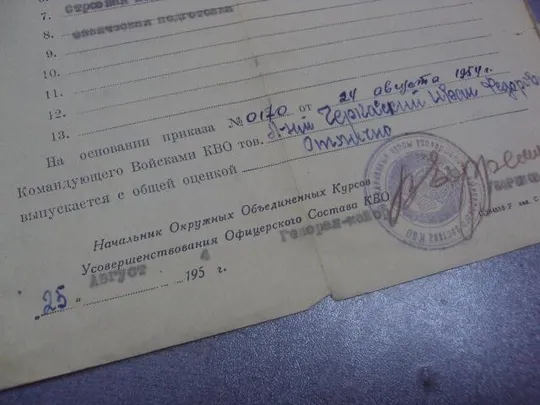 7. Строевая
8. Физическая подготовка
9.
10.
11.
12.
13.
На основании приказа № 0170 от 24 августа 1954 г.
Командующего Войсками КВО тов. Л-нт Черкасский Иван Федоров
выпускается с общей оценкой Отлично
Начальник Окружных Объединенных Курсов
Усовершенствования Офицерского Состава КВО
Генерал-майор
„25" Август 1954 г.